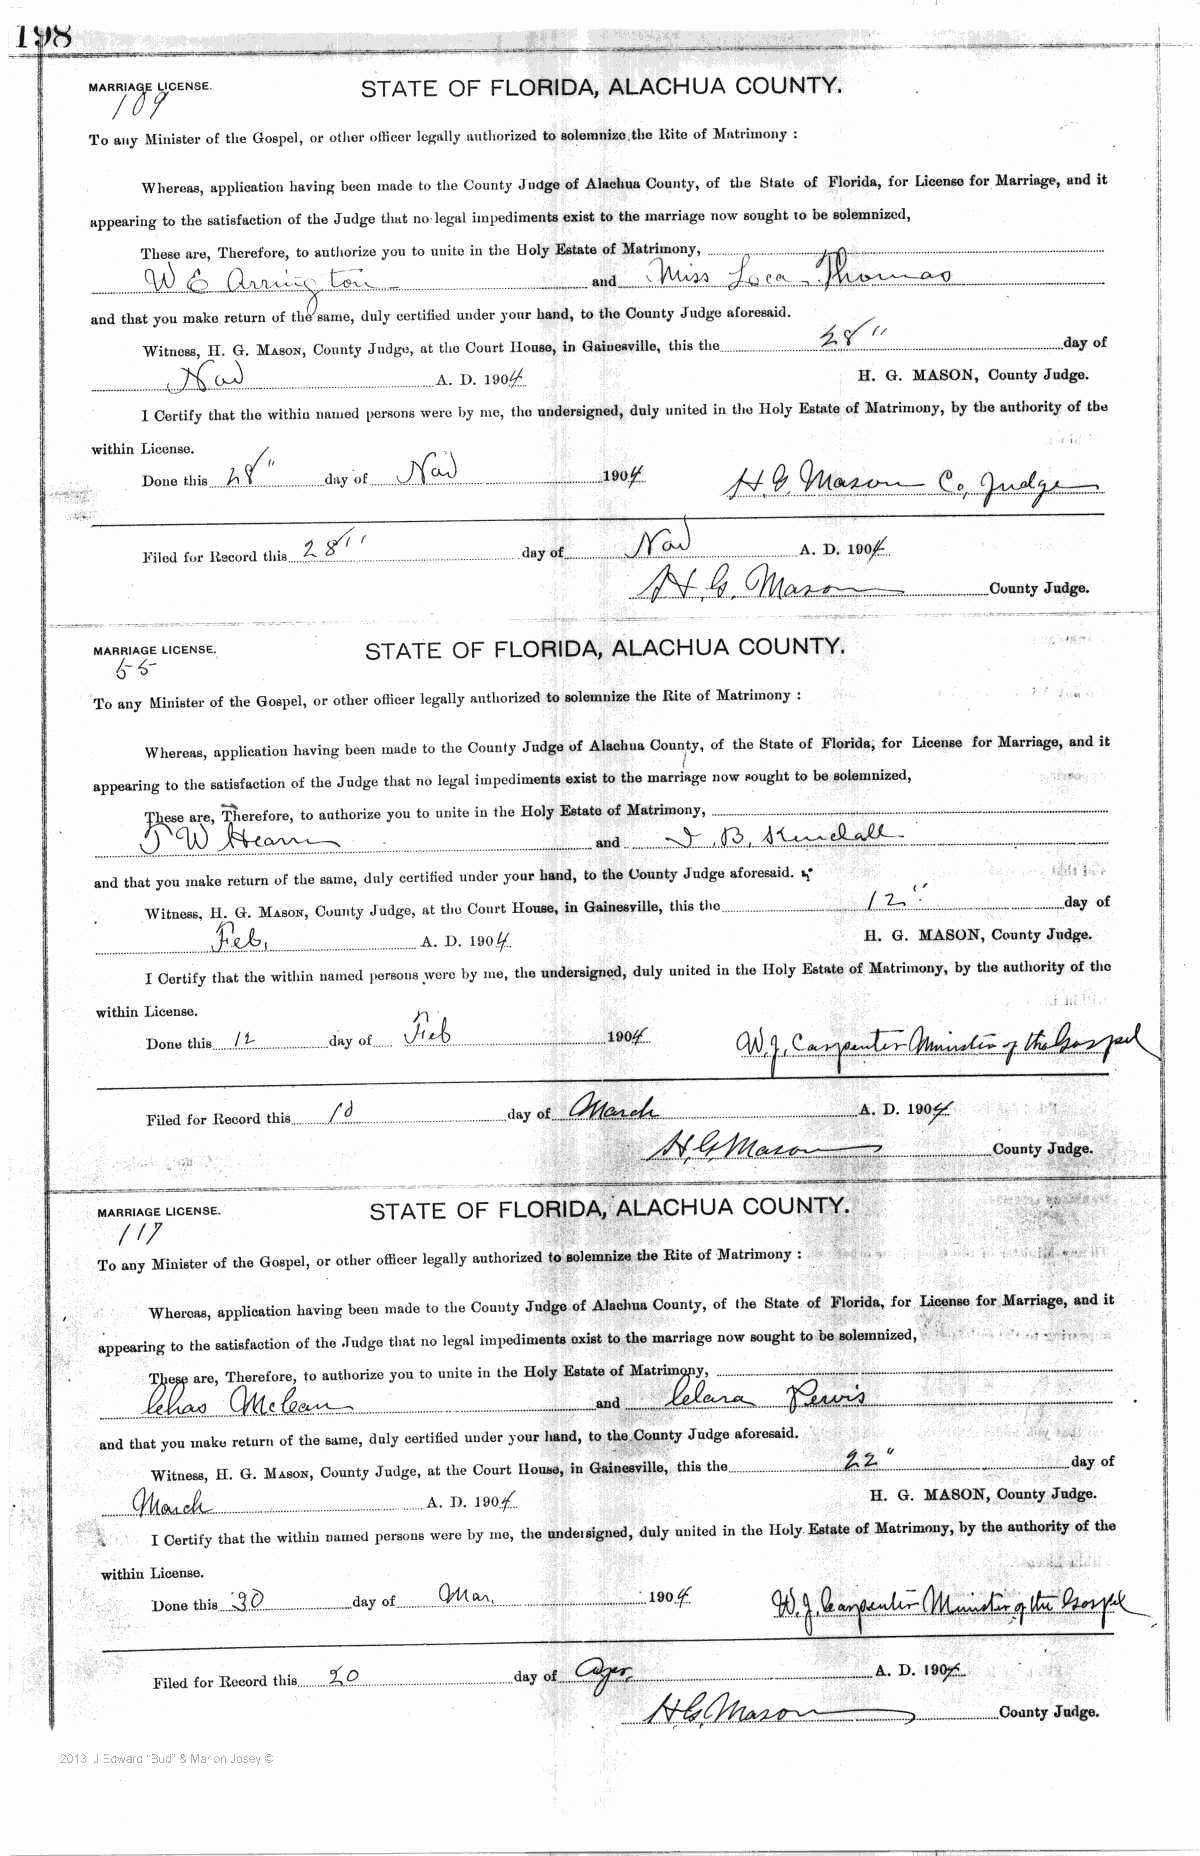 198
MARRIAGE LICENSE. STATE OF FLORIDA, ALACHUA COUNTY.
109
To any Minister of the Gospel, or other officer legally authorized to solemnize the Rite of Matrimony :
Whereas, application having been made to the County Judge of Alachua County, of the State of Florida, for License for Marriage, and it
appearing to the satisfaction of the Judge that no legal impediments exist to the marriage now sought to be solemnized,
These are, Therefore, to authorize you to unite in the Holy Estate of Matrimony,
W E Arrington and Miss Loca Thomas
and that you make return of the same, duly certified under your hand, to the County Judge aforesaid.
Witness, H. G. MASON, County Judge, at the Court House, in Gainesville, this the 28" day of
Nov A. D. 1904 H. G. MASON, County Judge.
I Certify that the within named persons were by me, the undersigned, duly united in the Holy Estate of Matrimony, by the authority of the
within License.
Done this 28" day of Nov 1904 H. G. Mason Co, Judge
Filed for Record this 28" day of Nov A. D. 1904
H. G. Mason County Judge.
MARRIAGE LICENSE. STATE OF FLORIDA, ALACHUA COUNTY.
55
To any Minister of the Gospel, or other officer legally authorized to solemnize the Rite of Matrimony :
Whereas, application having been made to the County Judge of Alachua County, of the State of Florida, for License for Marriage, and it
appearing to the satisfaction of the Judge that no legal impediments exist to the marriage now sought to be solemnized,
These are, Therefore, to authorize you to unite in the Holy Estate of Matrimony,
W Hearn and B. Kendall
and that you make return of the same, duly certified under your hand, to the County Judge aforesaid.
Witness, H. G. MASON, County Judge, at the Court House, in Gainesville, this the 12" day of
Feb, A. D. 1904 H. G. MASON, County Judge.
I Certify that the within named persons were by me, the undersigned, duly united in the Holy Estate of Matrimony, by the authority of the
within License.
Done this 12 day of Feb 1904 W. J. Carpenter Minister of the Gospel
Filed for Record this 10 day of March A. D. 1904
H. G. Mason County Judge.
MARRIAGE LICENSE. STATE OF FLORIDA, ALACHUA COUNTY.
117
To any Minister of the Gospel, or other officer legally authorized to solemnize the Rite of Matrimony :
Whereas, application having been made to the County Judge of Alachua County, of the State of Florida, for License for Marriage, and it
appearing to the satisfaction of the Judge that no legal impediments exist to the marriage now sought to be solemnized,
These are, Therefore, to authorize you to unite in the Holy Estate of Matrimony,
Chas McLean and Clara
and that you make return of the same, duly certified under your hand, to the County Judge aforesaid.
Witness, H. G. MASON, County Judge, at the Court House, in Gainesville, this the 22" day of
March A. D. 1904 H. G. MASON, County Judge.
I Certify that the within named persons were by me, the undersigned, duly united in the Holy Estate of Matrimony, by the authority of the
within License.
Done this 30 day of Mar, 1904 W. J. Carpenter Minister of the Gospel
Filed for Record this 20 day of Apr, A. D. 1904
H. G. Mason County Judge.
2013 J Edward "Bud" & Marion Josey ©